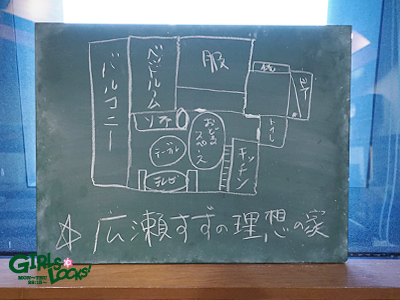 バルコニー
ベッドルーム
服
ソファ
テーブル
テレビ
キッチン
トイレ
☆広瀬すずの理想の家
GIRLS LOCKS!